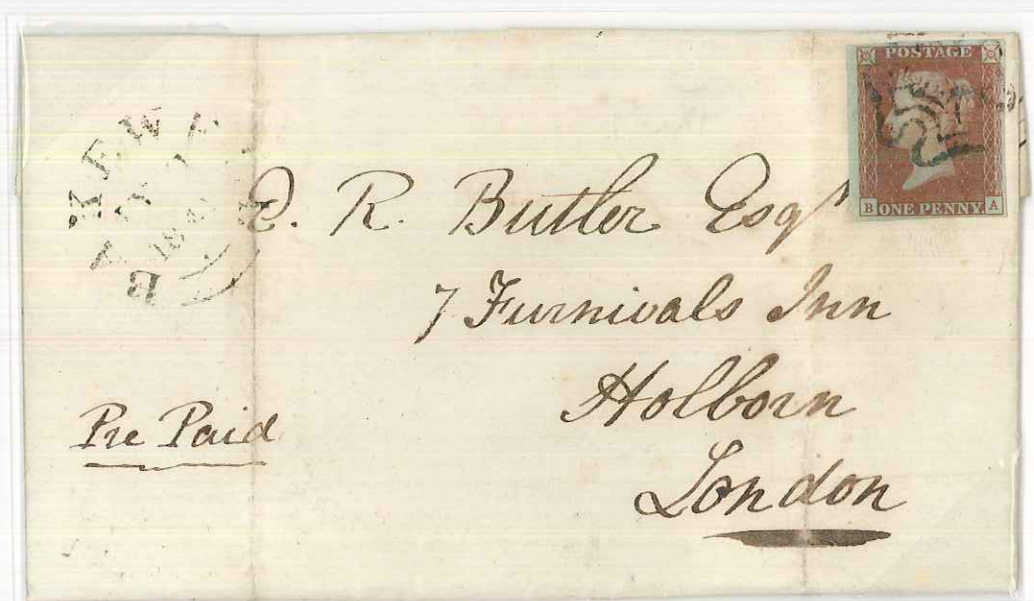 POSTAGE
B ONE PENNY. A
R. Butler Esqr
7 Furnivals Inn
Holborn
London
Pre Paid